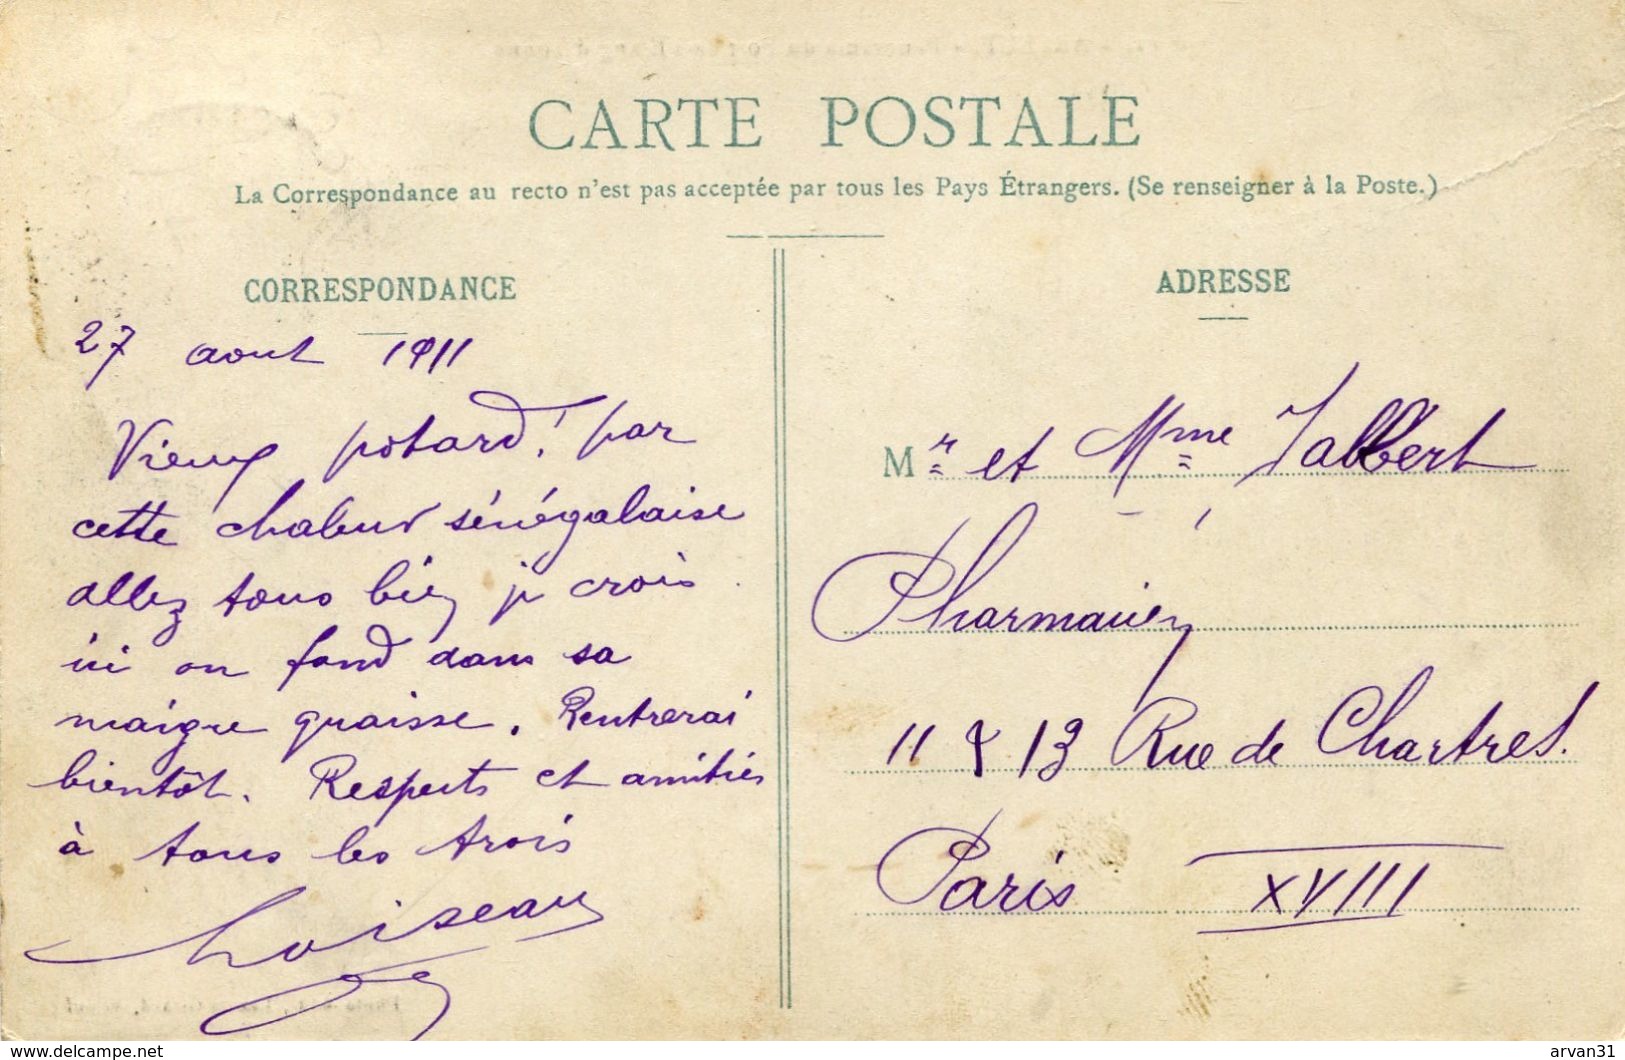 CARTE POSTALE
La Correspondance au recto n'est pas acceptée par tous les Pays Étrangers. (Se renseigner à la Poste.)
CORRESPONDANCE
27 aout 1911
Vieux potard! par
cette chaleur sénégalaise
allez tous bien je crois.
ici on fond dans sa
maigre graisse. Rentrerai
bientôt. Respects et amitiés
à tous les trois
Loiseau
ADRESSE
Mr et Mme Jalbert
Pharmacien
11 & 13 Rue de Chartres.
Paris XVIII
www.delcampe.net
arvan31